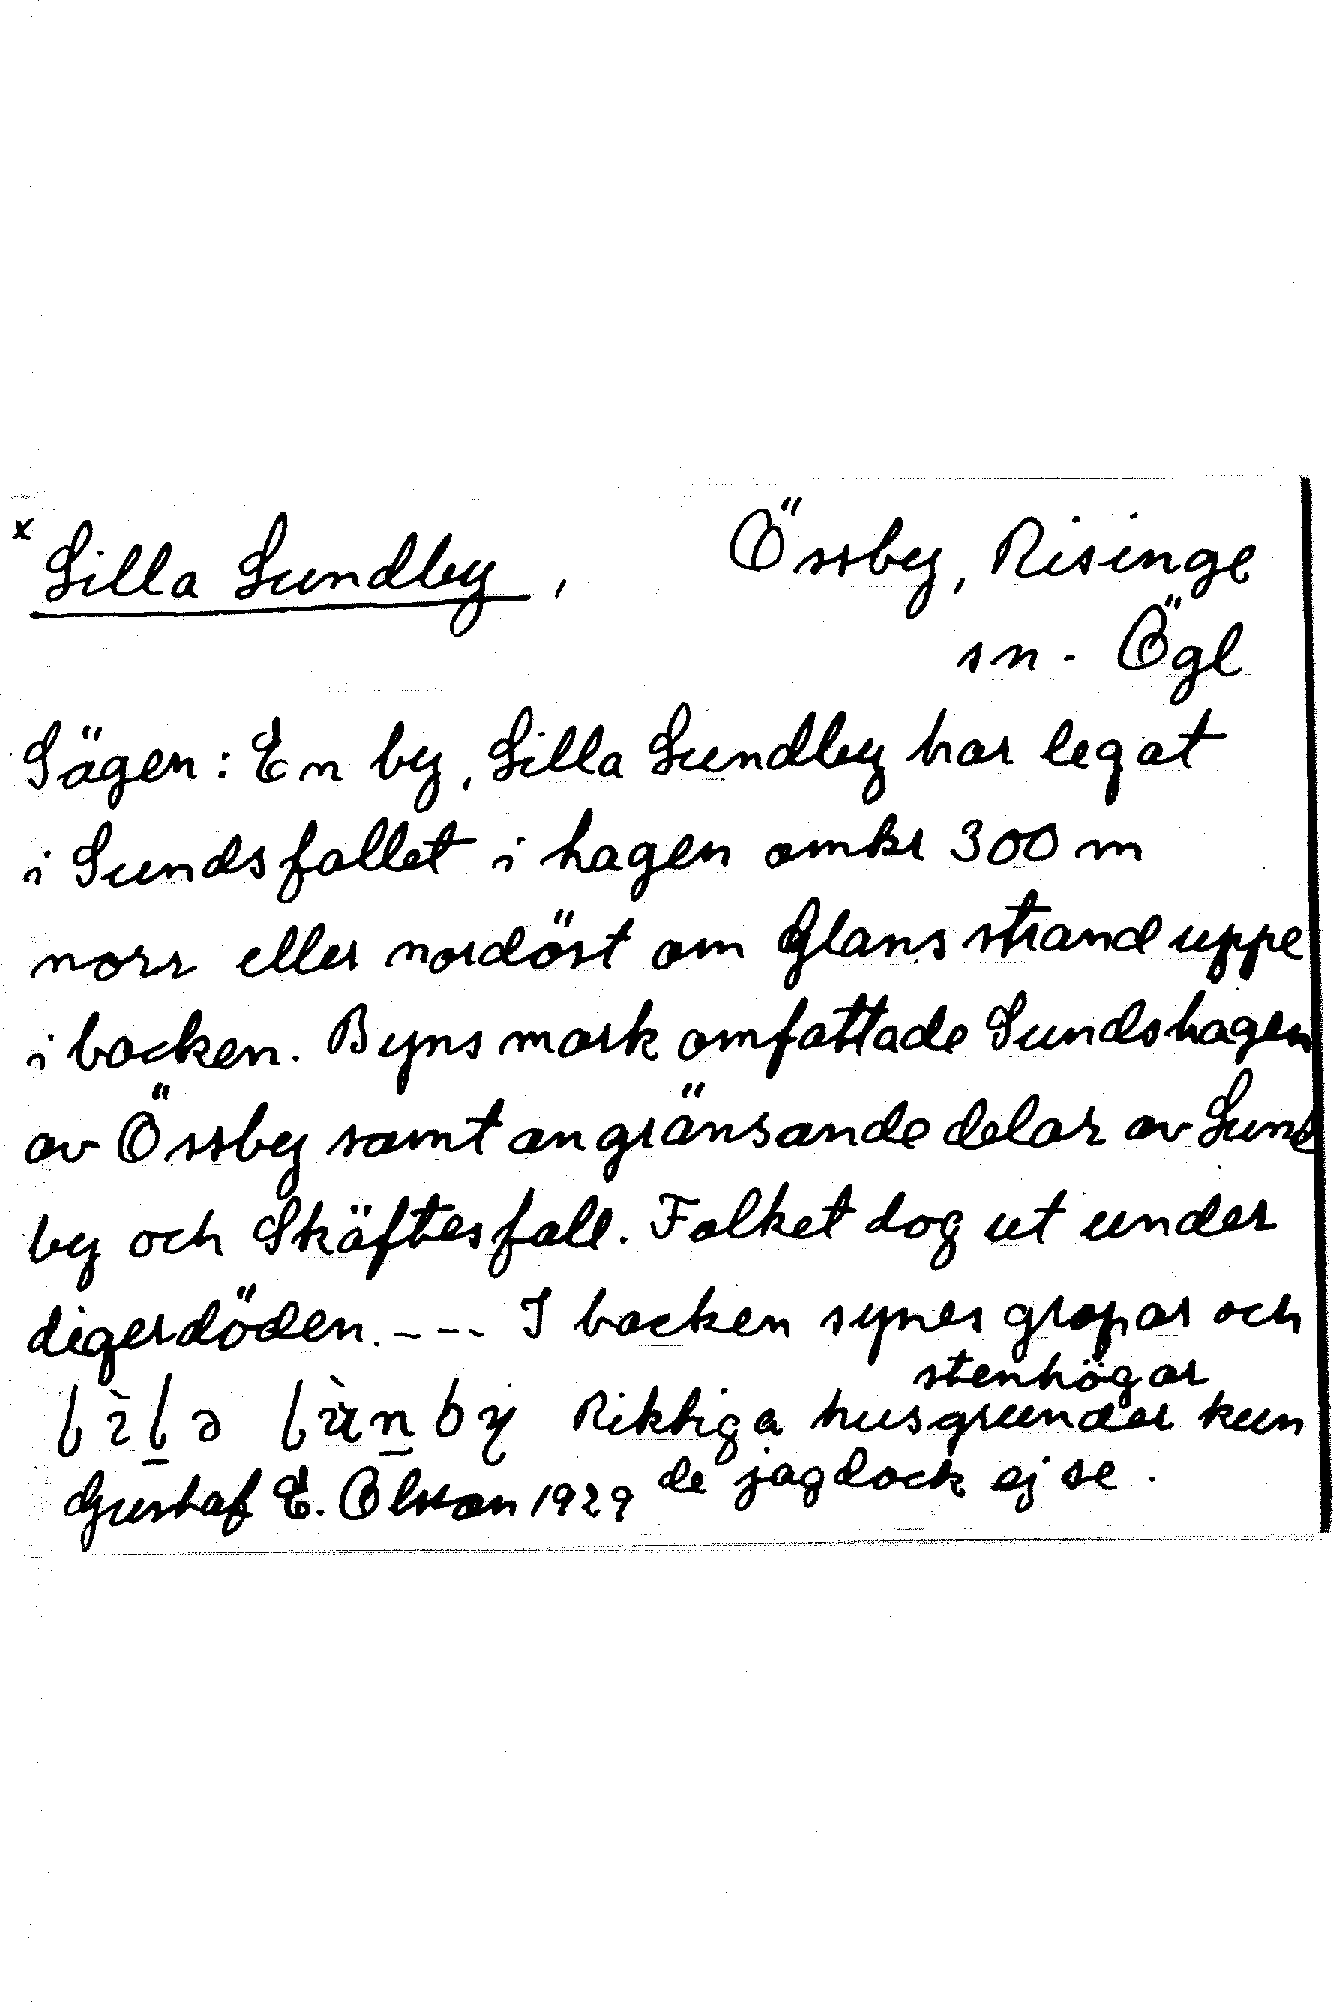 x Lilla Lundby, Össby, Risinge
sn. Ögl
Sägen: En by, Lilla Lundby har legat
i Sundsfallet i hagen omkr 300 m
norr eller nordöst om Glans strand uppe
i backen. Byns mark omfattade Sundshagen
av Össby samt angränsande delar av Lund
by och Skäftesfall. Folket dog ut under
digerdöden. --- I backen synes gropar och
stenhögar
lìl̲ə lùn̲by Riktiga husgrunder kun
Gustaf E. Olsson 1929 de jag dock ej se.